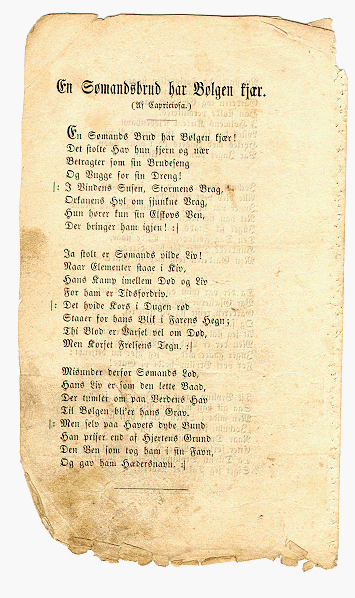 En Sømandsbrud har Bølgen kjær.
(Af Capriciosa.)
En Sømands Brud har Bølgen kjær!
Det stolte Hav hun fjern og nær
Betragter som sin Brudeseng
Og Vugge for sin Dreng!
|: I Vindens Susen, Stormens Brag,
Orkanens Hyl om sjunkne Vrag,
Hun hører kun sin Elskovs Ven,
Der bringer ham igjen! :|
Ja stolt er Sømands vilde Liv!
Naar Elementer staae i Kiv,
Hans Kamp imellem Død og Liv
For ham er Tidsfordriv.
|: Det hvide Kors i Dugen rød
Staaer for hans Blik i Farens Hegn;
Thi Blod er Varsel vel om Død,
Men Korset Frelsens Tegn. :|
Misunder derfor Sømands Lod,
Hans Liv er som den lette Baad,
Der tumler om paa Verdens Hav
Til Bølgen bli'er hans Grav.
|: Men selv paa Havets dybe Bund
Han priser end af Hjertens Grund
Den Ven som tog ham i sin Favn,
Og gav ham Hædersnavn. :|